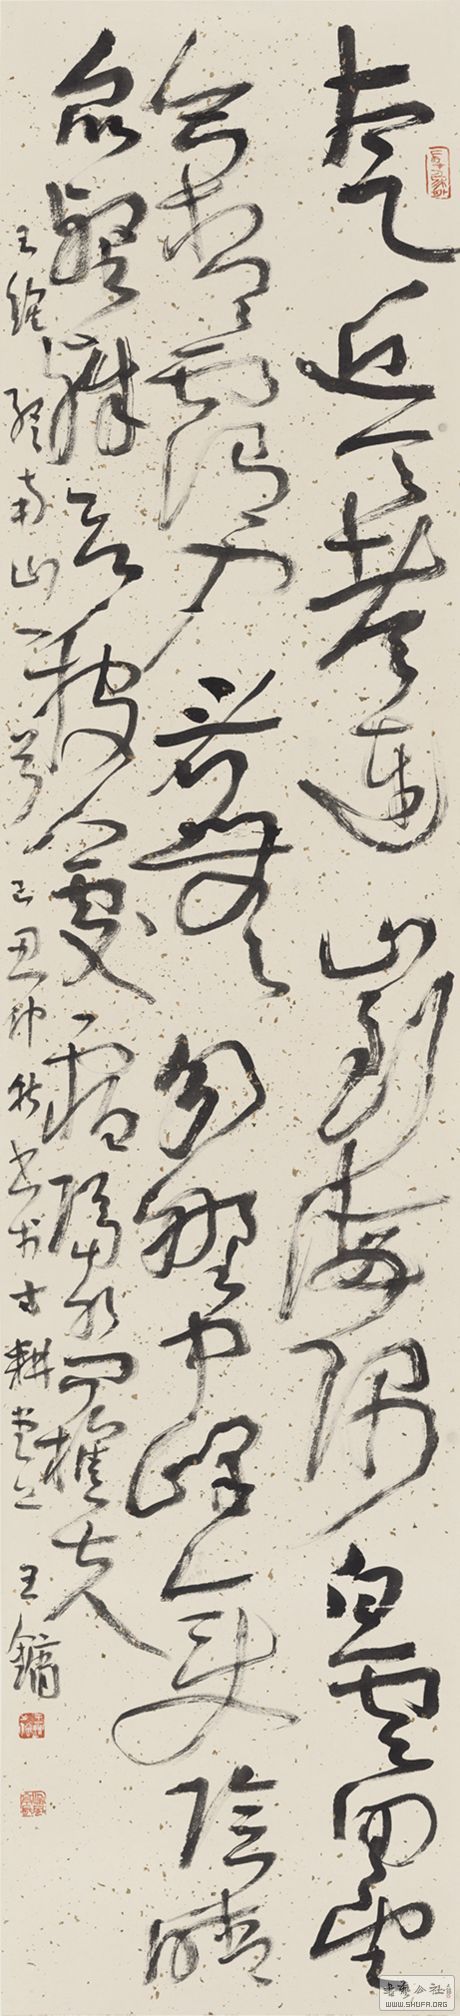 太乙近天都連山到海隅白雲回望
合青靄入看無分野中峰變陰晴
眾壑殊欲投人處宿隔水問樵夫
王維終南山一首己丑仲秋書於古耕堂上王鏞
书艺公社
WWW.SHUFA.ORG